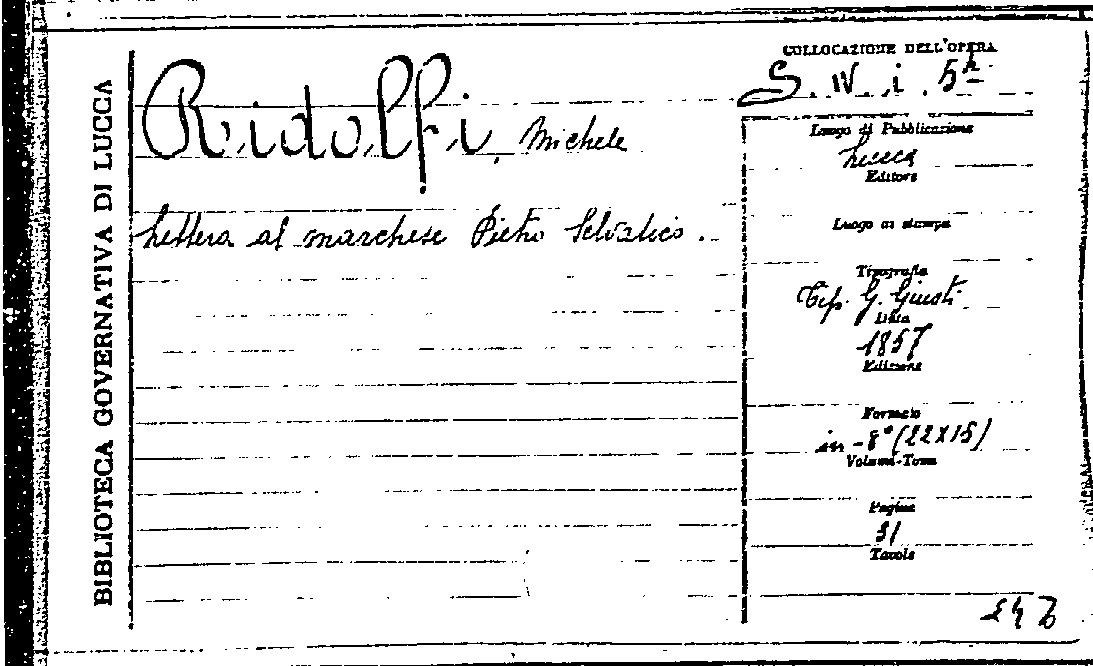 BIBLIOTECA GOVERNATIVA DI LUCCA
Ridolfi, Michele
Lettera al marchese Pietro Selvatico.
COLLOCAZIONE DELL'OPERA
S. IV. i. 5
Luogo di Pubblicazione
Lucca
Editore
Luogo di stampa
Tipografia
Tip. G. Giusti
Data
1857
Edizione
Formato
in-8° (22X15)
Volumi-Tomi
Pagine
Tavole